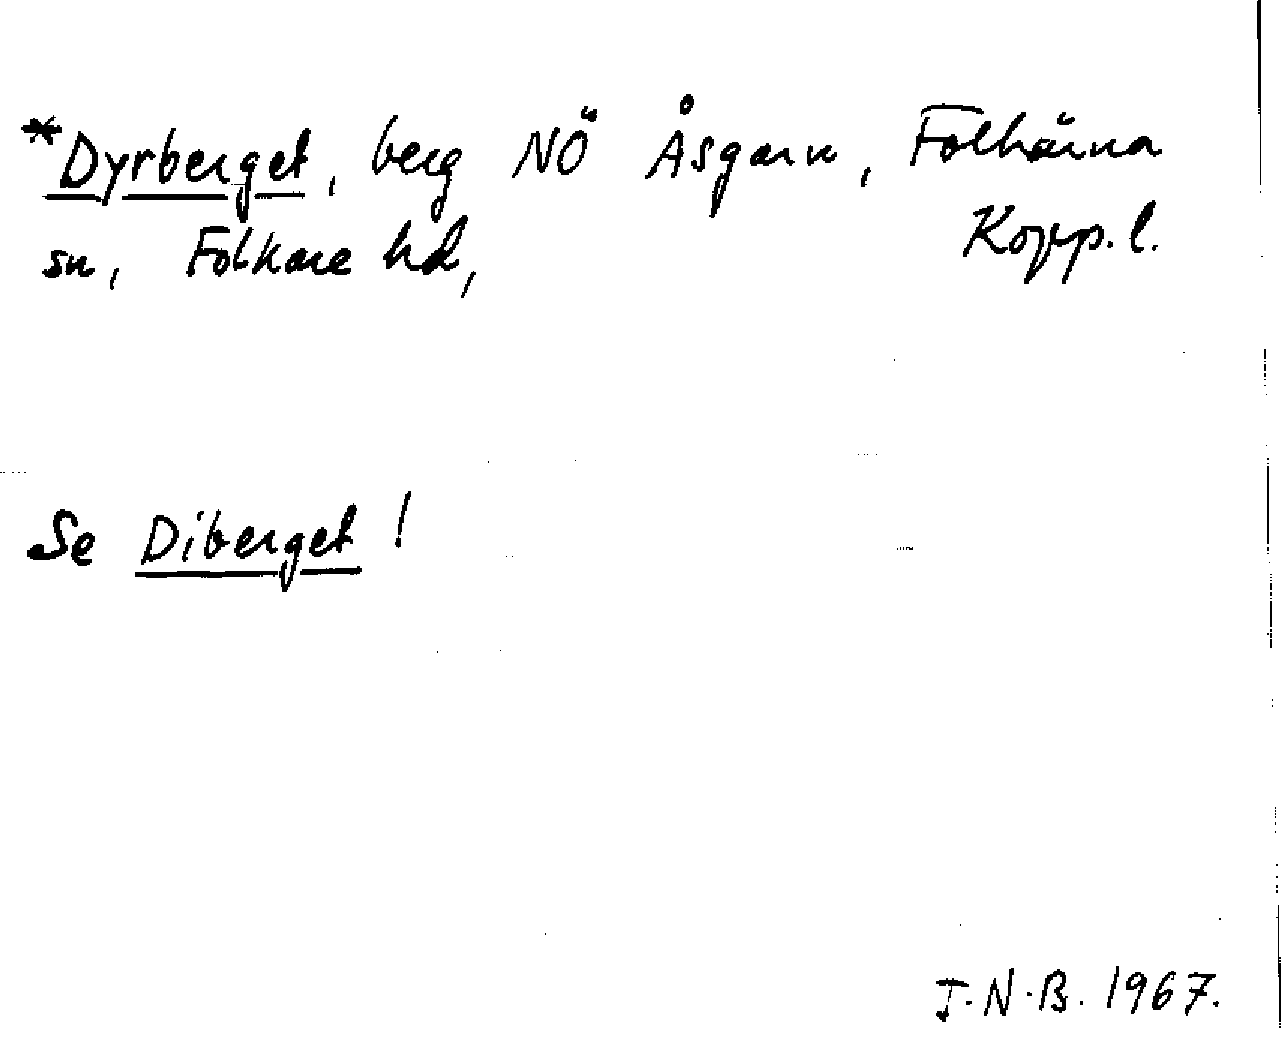 *Dyrberget, berg NÖ Åsgarn, Folkärna
sn, Folkare hd, Kopp. l.
Se Diberget!
J.N.B. 1967.